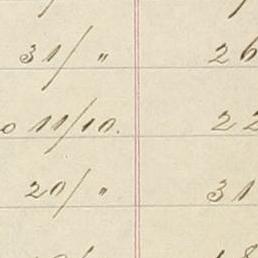 31/" 26
0 11/10. 22
20/" 31
18